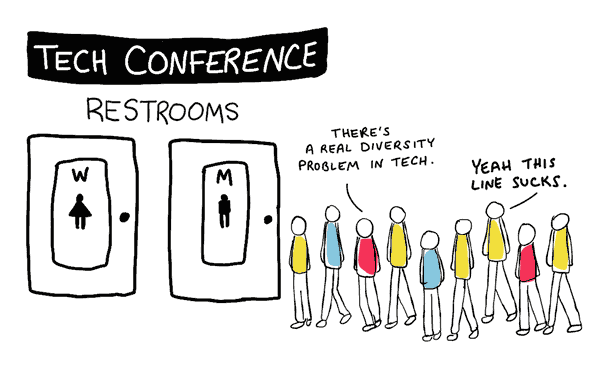 TECH CONFERENCE
RESTROOMS
W
M
THERE'S
A REAL DIVERSITY
PROBLEM IN TECH.
YEAH THIS
LINE SUCKS.